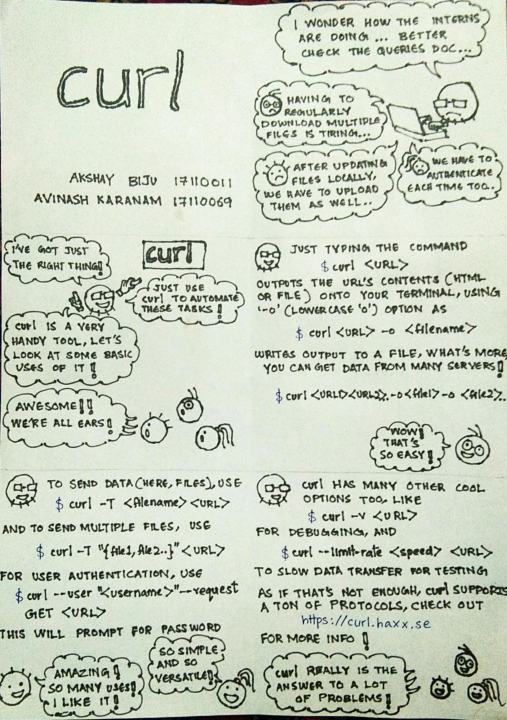 curl
AKSHAY BIJU 17110011
AVINASH KARANAM 17110069
I WONDER HOW THE INTERNS
ARE DOING ... BETTER
CHECK THE QUERIES DOC...
HAVING TO
REGULARLY
DOWNLOAD MULTIPLE
FILES IS TIRING...
AFTER UPDATING
FILES LOCALLY,
WE HAVE TO UPLOAD
THEM AS WELL..
WE HAVE TO
AUTHENTICATE
EACH TIME TOO..
I'VE GOT JUST
THE RIGHT THING!
curl
JUST USE
curl TO AUTOMATE
THESE TASKS!
curl IS A VERY
HANDY TOOL, LET'S
LOOK AT SOME BASIC
USES OF IT!
AWESOME!!
WE'RE ALL EARS!
JUST TYPING THE COMMAND
$ curl <URL>
OUTPUTS THE URL'S CONTENTS (HTML
OR FILE) ONTO YOUR TERMINAL, USING
'-o' (LOWERCASE 'O') OPTION AS
$ curl <URL> -o <filename>
WRITES OUTPUT TO A FILE, WHAT'S MORE
YOU CAN GET DATA FROM MANY SERVERS!
$ curl <URL1><URL2>..-o<file1>-o <file2>..
WOW!
THAT'S
SO EASY!
TO SEND DATA (HERE, FILES), USE
$ curl -T <filename> <URL>
AND TO SEND MULTIPLE FILES, USE
$ curl -T "{file1,file2..}" <URL>
FOR USER AUTHENTICATION, USE
$ curl --user "<username>" --request
GET <URL>
THIS WILL PROMPT FOR PASSWORD
AMAZING!
SO MANY USES!
I LIKE IT!
SO SIMPLE
AND SO
VERSATILE!
curl HAS MANY OTHER COOL
OPTIONS TOO, LIKE
$ curl -v <URL>
FOR DEBUGGING, AND
$ curl --limit-rate <speed> <URL>
TO SLOW DATA TRANSFER FOR TESTING
AS IF THAT'S NOT ENOUGH, curl SUPPORTS
A TON OF PROTOCOLS, CHECK OUT
https://curl.haxx.se
FOR MORE INFO!
curl REALLY IS THE
ANSWER TO A LOT
OF PROBLEMS!